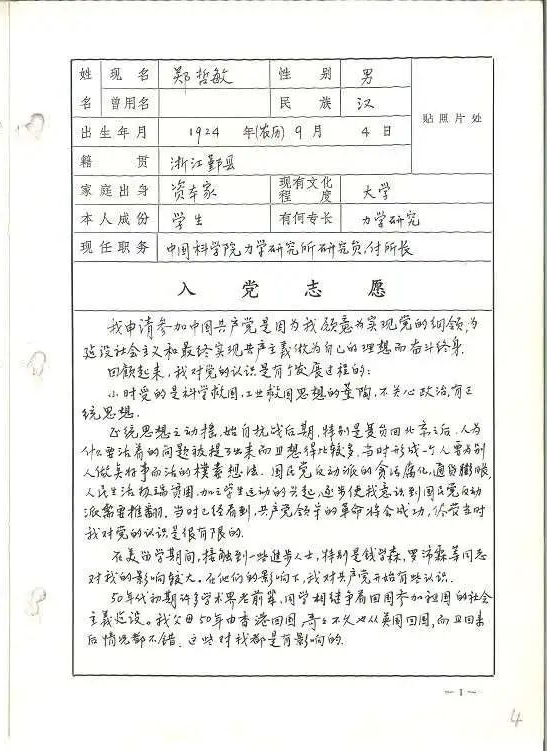 姓 现名 郑哲敏 性别 男
名 曾用名 民族 汉 贴照片处
出生年月 1924 年(农历) 9 月 4 日
籍贯 浙江鄞县
家庭出身 资本家 现有文化程度 大学
本人成份 学生 有何专长 力学研究
现任职务 中国科学院力学研究所研究员,付所长
入党志愿
我申请参加中国共产党是因为我愿意为实现党的纲领,为
建设社会主义和最终实现共产主义做为自己的理想而奋斗终身.
回顾起来,我对党的认识是有个发展过程的:
小时受的是科学救国,工业救国思想的薰陶,不关心政治,有正
统思想.
正统思想之动摇,始自抗战后期,特别是复员回北京之后.人为
什么要活着的问题被提了出来而且想得比较多.当时形成一个人要为别
人做点好事而活的樸素想法.国民党反动派的贪污腐化,通货膨胀,
人民生活极端贫困,加之学生运动的兴起,逐步使我意识到国民党反动
派需要推翻.当时已经看到,共产党领导的革命将会成功,尽管当时
我对党的认识是很有限的.
在美留学期间,接触到一些进步人士,特别是钱学森,罗沛霖等同志
对我的影响较大.在他们的影响下,我对共产党开始有些认识.
50年代初期许多学术界老前辈,同学相继争着回国参加祖国的社会
主义建设。我父母50年由香港回国,哥哥不久也从英国回国,而且回来
后情况都不错.这些对我都是有影响的.
—1—
4